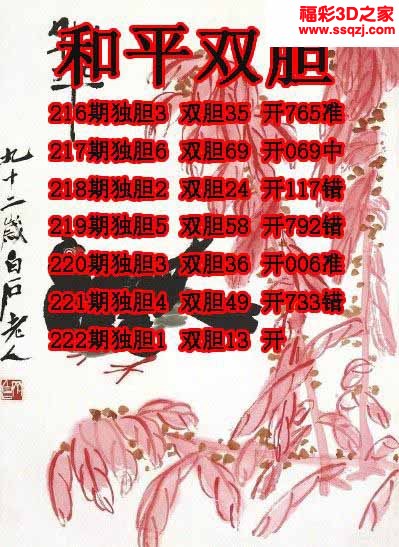 福彩3D之家
www.ssqzj.com
和平双胆
216期独胆3 双胆35 开765准
217期独胆6 双胆69 开069中
218期独胆2 双胆24 开117错
219期独胆5 双胆58 开792错
220期独胆3 双胆36 开006准
221期独胆4 双胆49 开733错
222期独胆1 双胆13 开
九十二岁白石老人